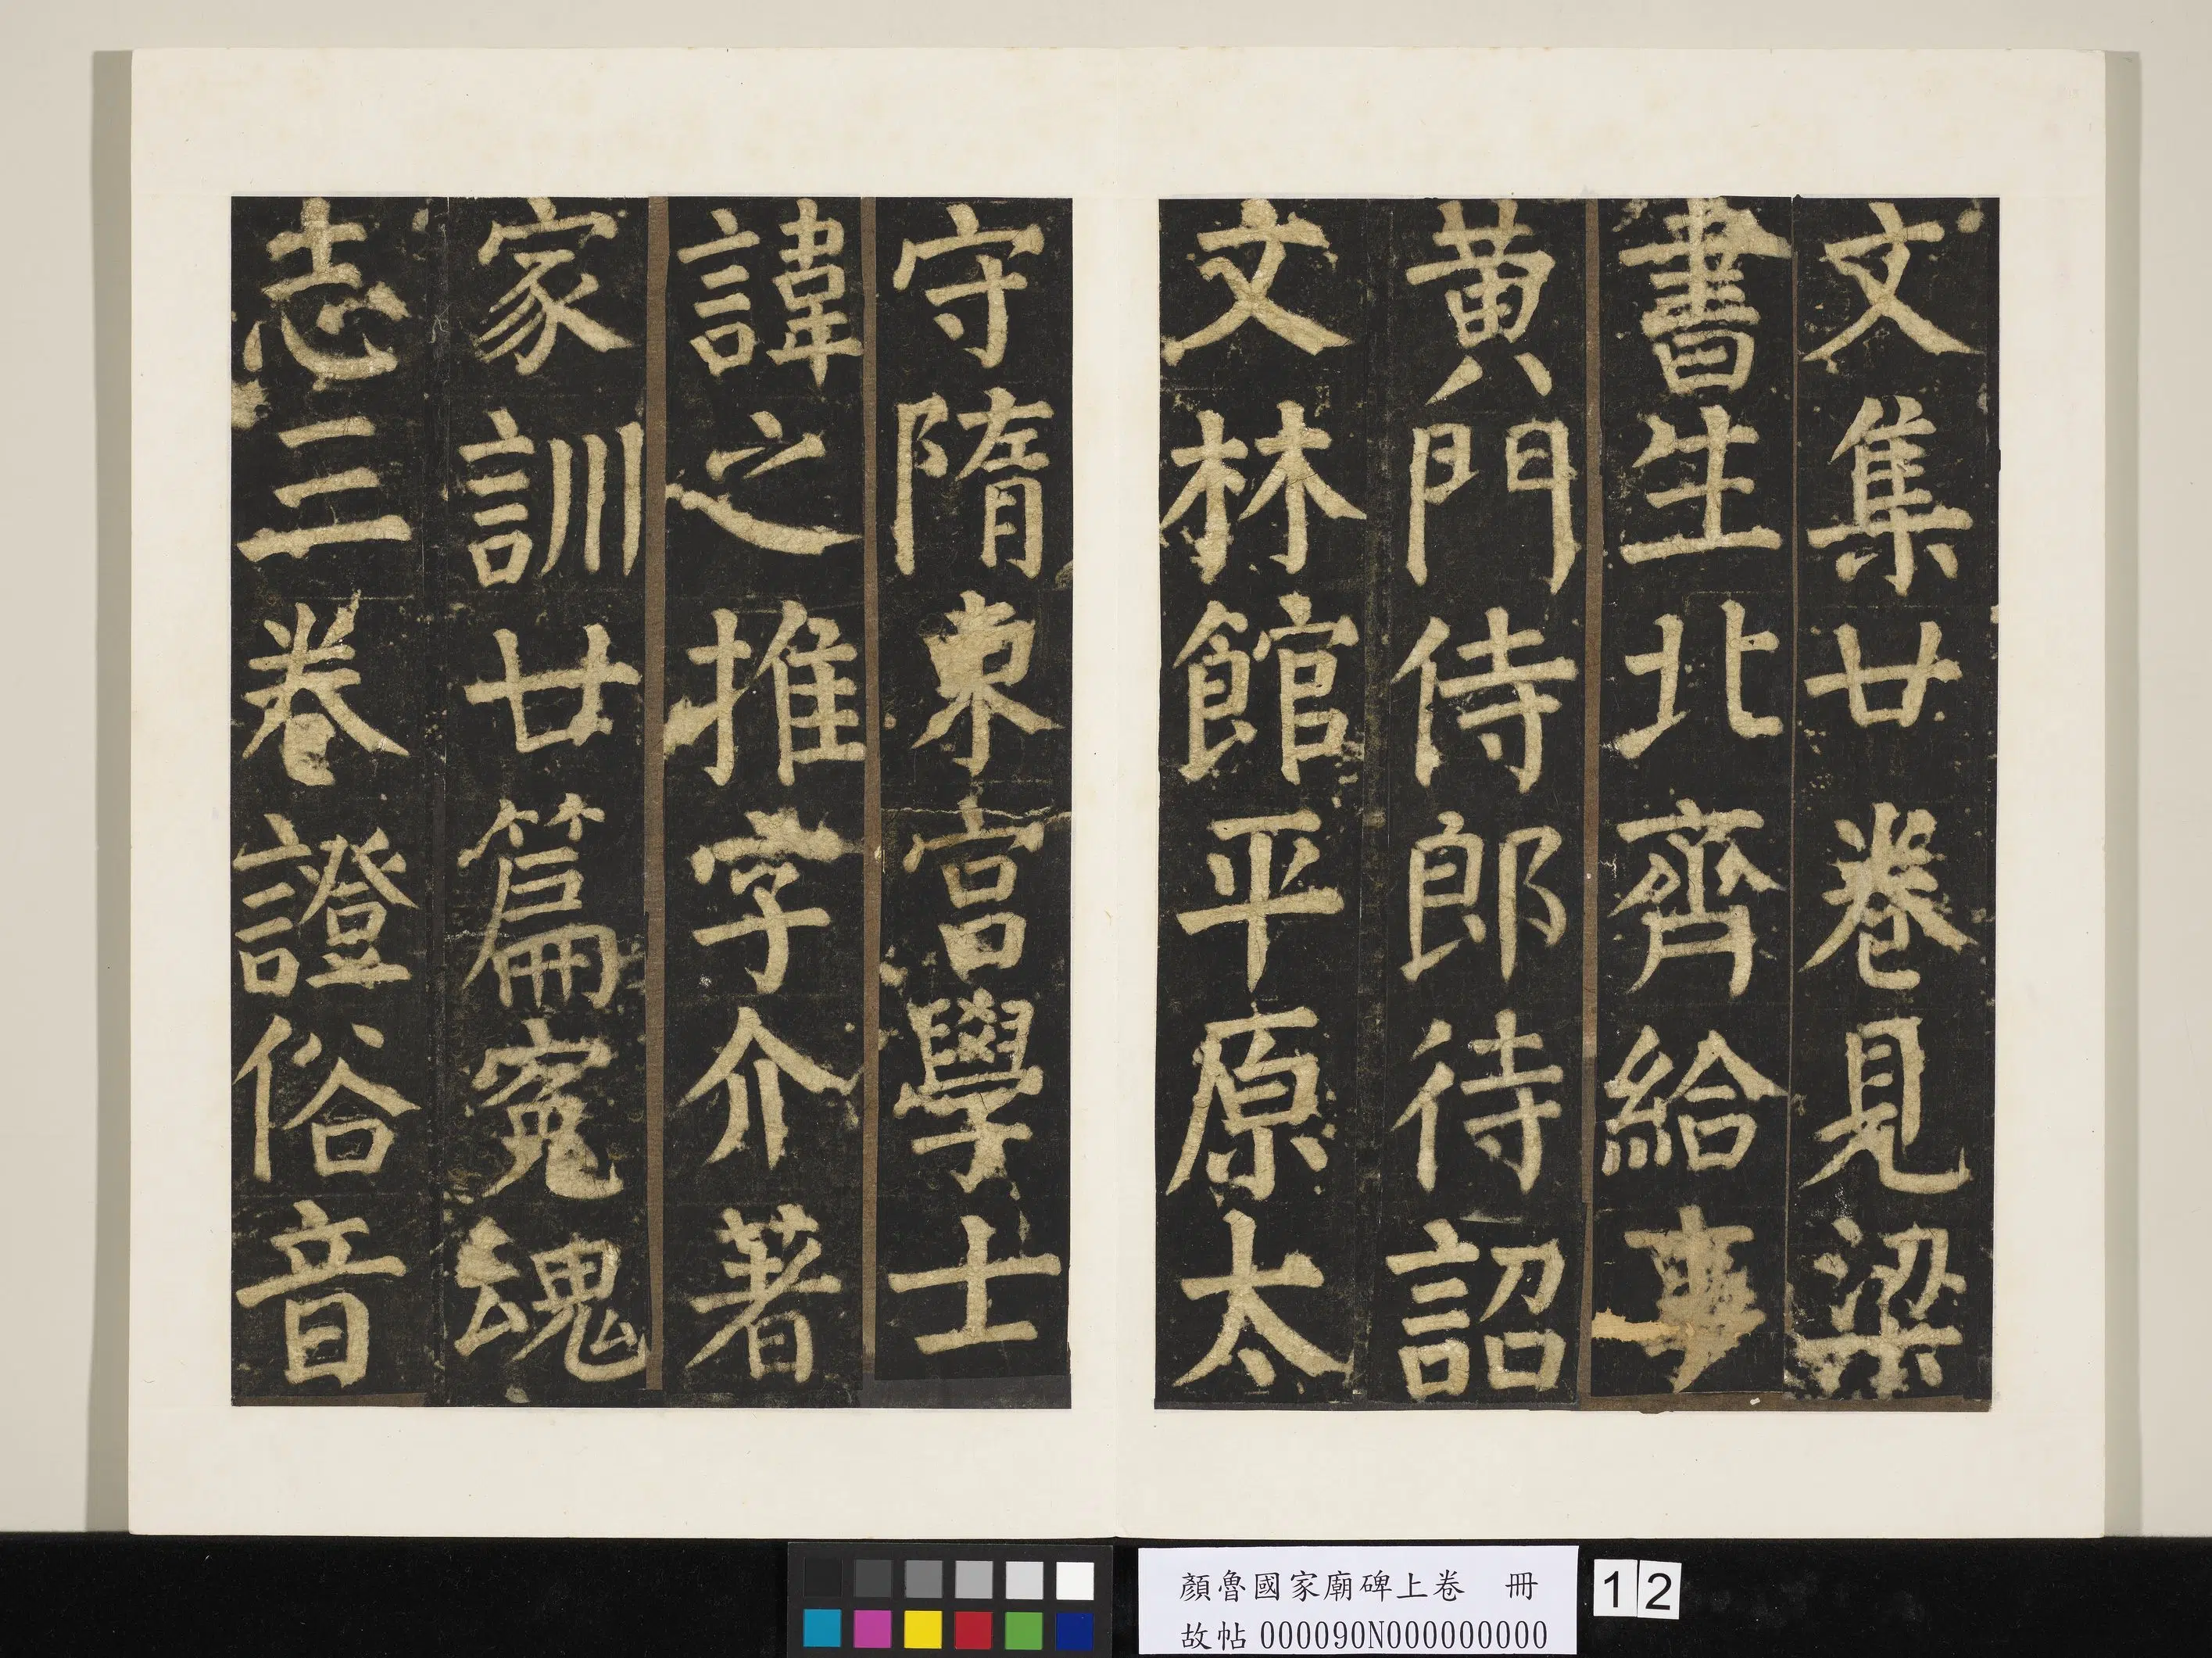 文集廿卷見梁
書生北齊給事
黃門侍郎待詔
文林館平原太
守隋東宮學士
諱之推字介著
家訓廿篇寃魂
志三卷證俗音
顏魯國家廟碑上卷　冊
故帖000090N000000000
12